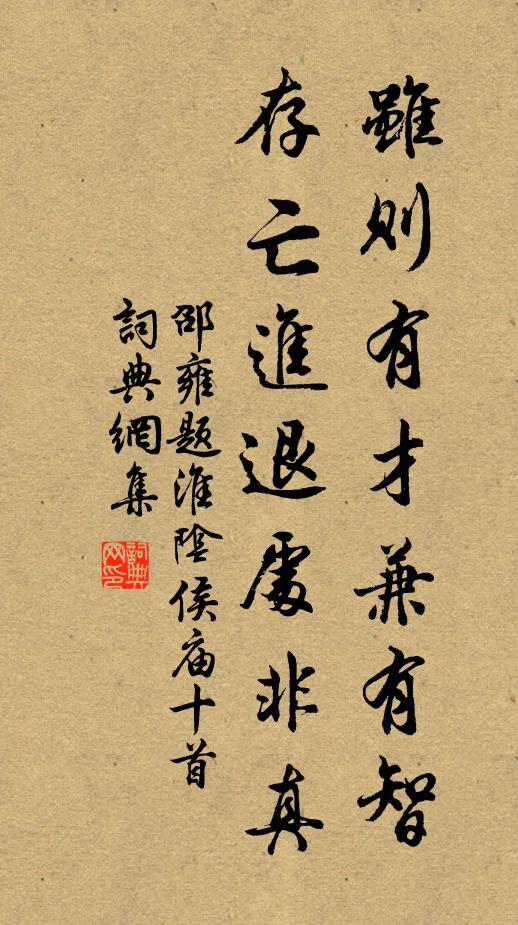 雖則有才兼有智
存亡進退處非真
邵雍題淮陰侯庙十首
詞典網集
詞典網印